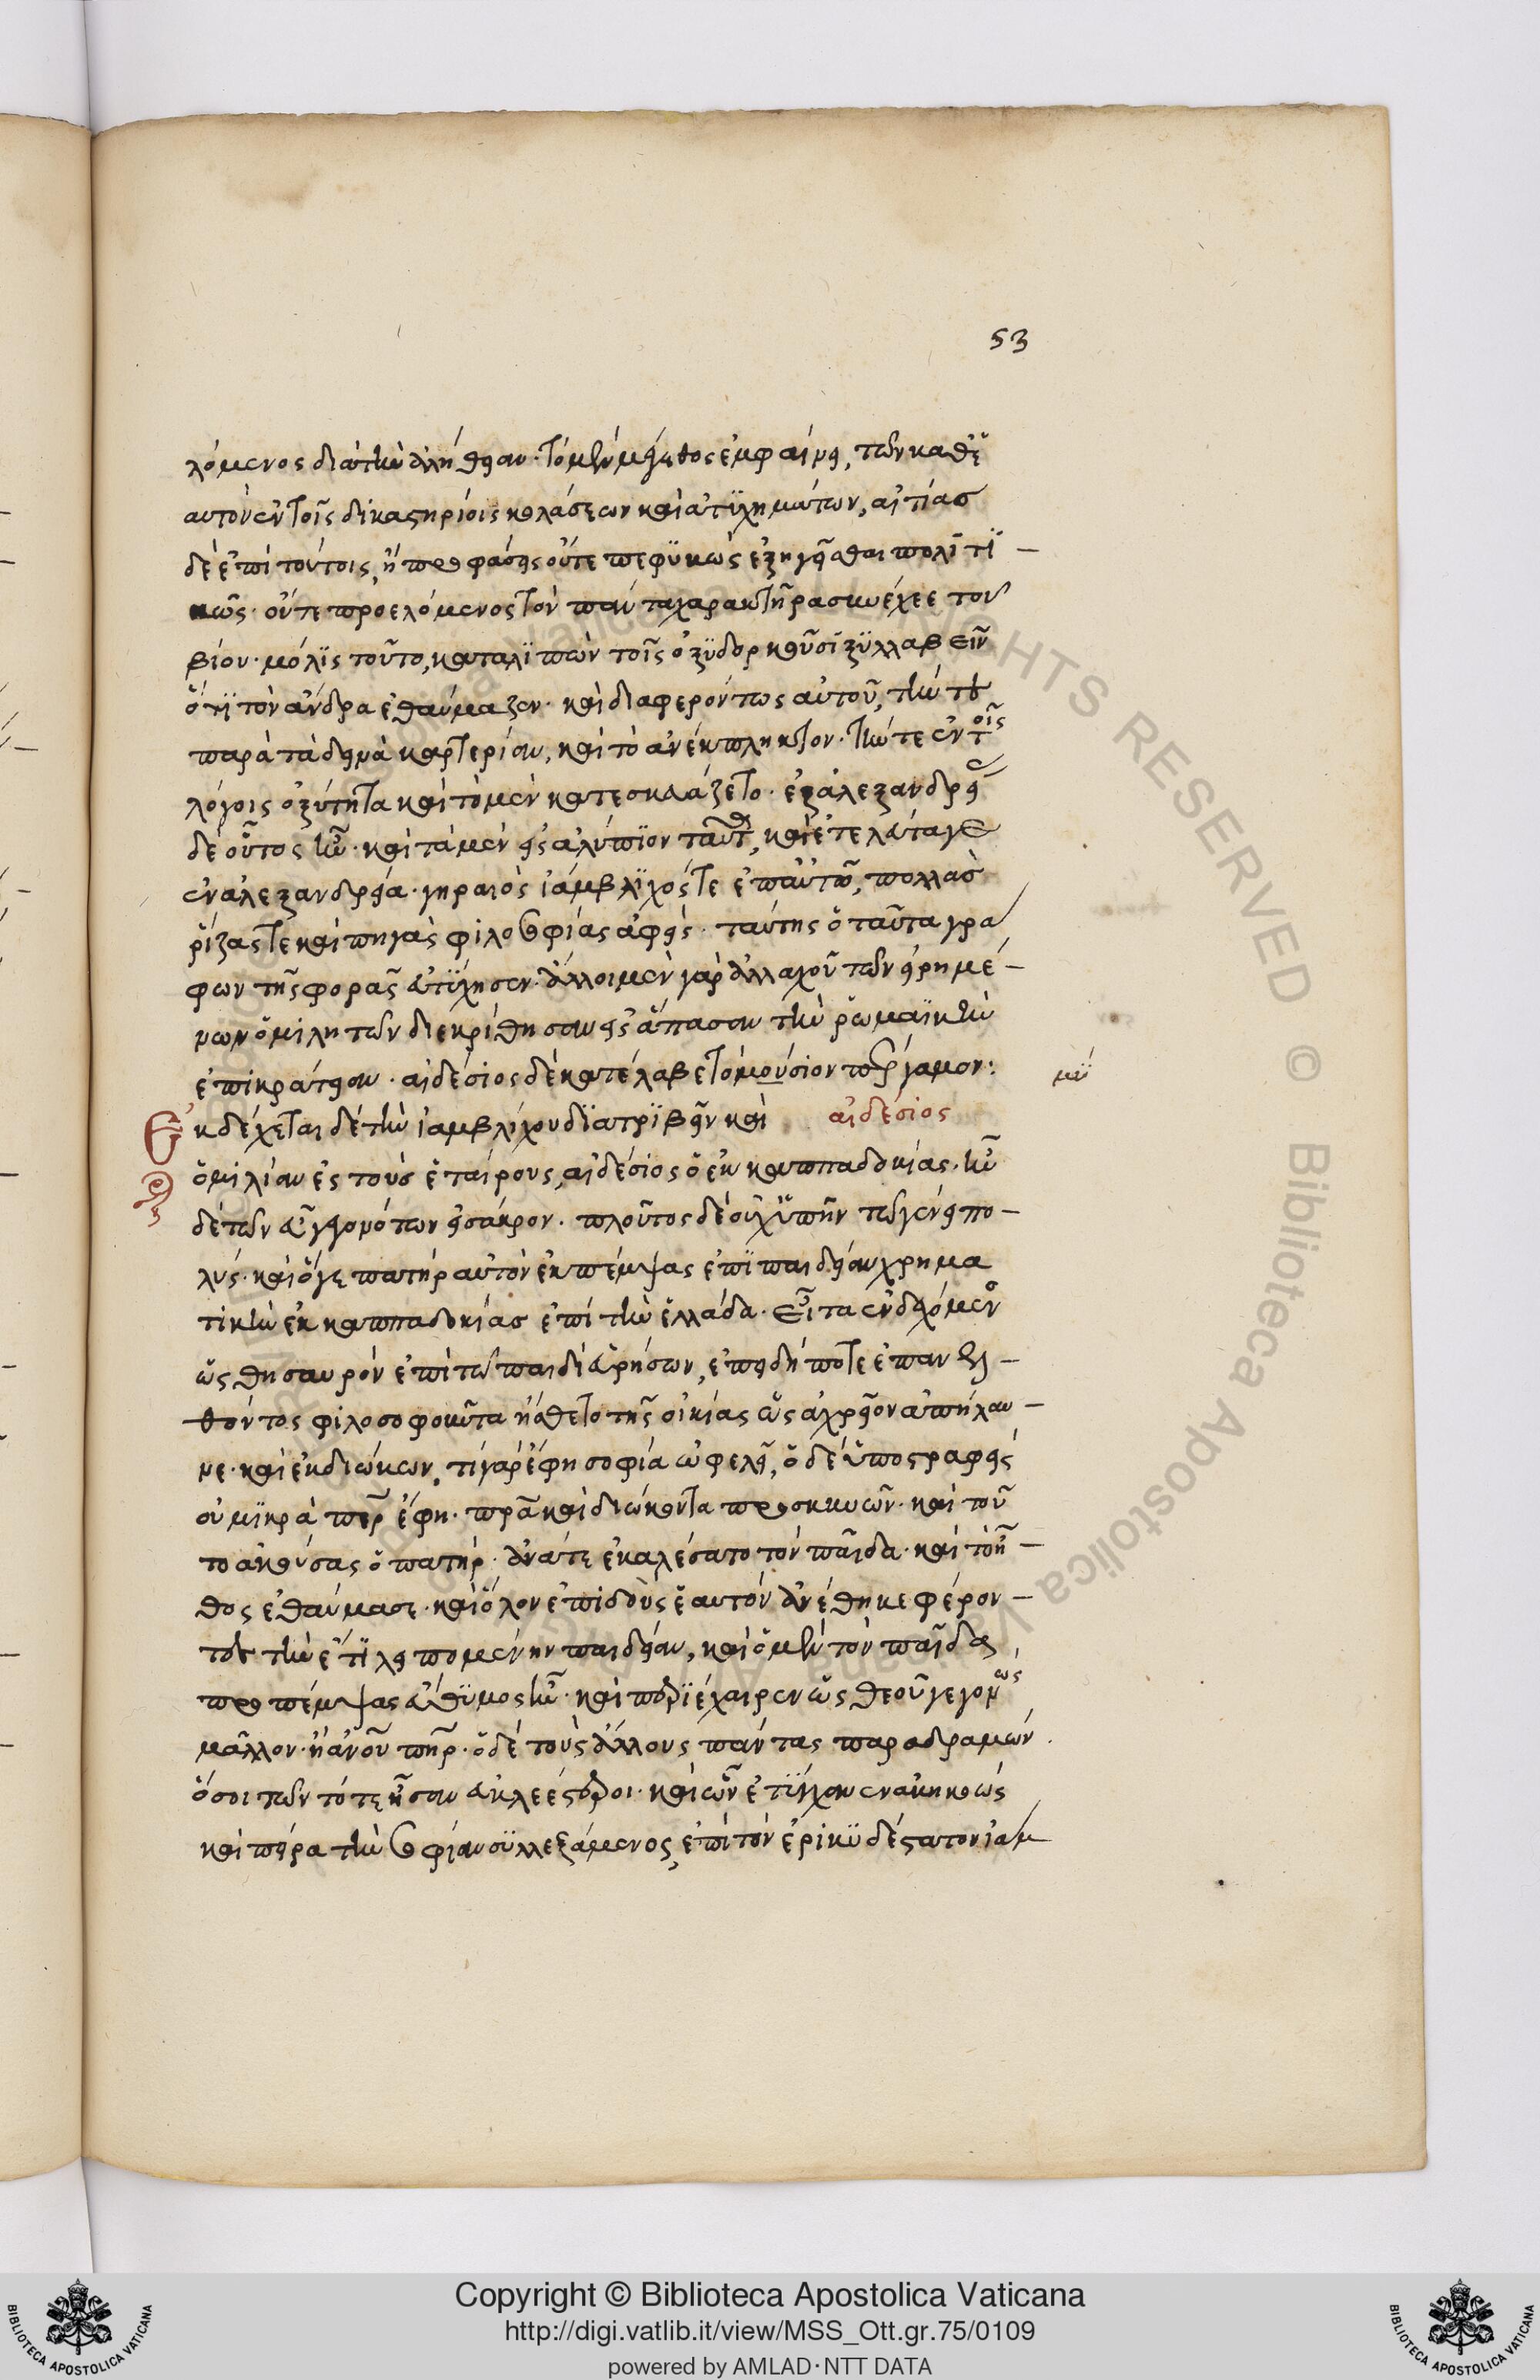 53
λόμενος διὰ τὴν ἀλήθειαν. τὸ μὲν μέγεθος ἐμφαίνει, τῶν καθ'
αυτὸν ἐν τοῖς δικαστηρίοις κολάσεων καὶ ἀτϋχημάτων, αἰτίας
δὲ ἐπὶ τούτοις, ἢ προφάσεις οὔτε πεφϋκὼς ἐξηγεῖσθαι πολϊτϊ—
κῶς. οὔτε προελόμενος τὸν πάντα χαρακτῆρα συνέχεε τοῦ
βίου. μόλϊς τοῦτο, καταλϊπὼν τοῖς ὀξϋδορκοῦσϊ ξϋλλαβεῖν
ὅτϊ τὸν ἄνδρα ἐθαύμαζεν. καὶ διαφερόντως αὐτοῦ, τὴν τε
παρὰ τὰ δεινὰ καρτερίαν, καὶ τὸ ἀνέκπληκτον. τήν τε ἐν τοῖς
λόγοις ὀξύτητα καὶ τὸ μὲν κατεσκιάζετο. ἐξ ἀλεξανδρείας
δὲ οὗτος ἦν. καὶ τὰ μὲν εἰς ἀλύπϊον ταύτῃ, καὶ ἐτελεύτα γε
ἐν ἀλεξανδρείᾳ. γηραιὸς ἰάμβλϊχός τε ἐπ' αὐτῷ, πολλὰς
ῥίζας τε καὶ πηγὰς φιλοσοφίας ἀφείς. ταύτης ὁ ταῦτα γρά
φων τῆς φορᾶς εὐτϋχησεν. ἄλλοι μὲν γὰρ ἀλλαχοῦ τῶν εἰρημέ—
νων ὁμιλητῶν διεκρίθησαν εἰς ἅπασαν τὴν ῥωμαϊκὴν
ἐπικράτειαν. αἰδέσιος δὲ κατέλαβε τὸ μούσιον πέργαμον:
μϋ
αἰδέσιος
Ἐκδέχεται δὲ τὴν ἰαμβλίχου δϊατρϊβὴν καὶ
ὁμιλίαν ἐς τοὺς ἑταίρους, αἰδέσιος ὁ ἐκ καππαδοκίας. ἦν
δὲ τῶν εὖ γεγονότων εἰς ἄκρον. πλοῦτος δὲ οὐχ ὑπῆν τῷ γένει πο—
λύς. καὶ ὅγε πατὴρ αὐτὸν ἐκπέμψας ἐπϊ παιδείαν χρημα
τικὴν ἐκ καππαδοκίας ἐπὶ τὴν ἑλλάδα. εἶτα ἐνδεχόμενος
ὡς θησαυρὸν ἐπὶ τῷ παιδὶ εὑρήσων, ἐπειδή ποτε ἐπανελ—
θόντος φιλοσοφοῦντα ᾔσθετο τῆς οἰκίας ὡς ἀχρεῖον ἀπήλαυ—
νε. καὶ ἐκδιώκων, τί γὰρ ἔφη σοφία ὠφελεῖ, ὁ δὲ ὑποστραφείς
οὐ μϊκρὰ πάτερ ἔφη. πατέρα καὶ διώκοντα προσκυνῶν. καὶ τοῦ
το ἀκούσας ὁ πατὴρ. ἀνά τε ἐκαλέσατο τὸν παῖδα. καὶ τὸ ἦ—
θος ἐθαύμασε. καὶ ὅλον ἐπιδοὺς ἑαυτὸν ἀνέθηκε φέρον—
τες τὴν ἔτϊ λειπομένην παιδείαν, καὶ ὁ μὲν τὸν παῖδα
προπέμψας εὔθϋμος ἦν. καὶ περϊέχαιρεν ὡς θεοῦ γεγονὼς
μᾶλλον. ἢ ἀνου πηρ. ὁ δὲ τοὺς ἄλλους πάντας παραδραμών.
ὅσοι τῶν τότε ἦσαν εὐκλεέστεροι. καὶ ὧν ἐτϋγχανεν ἀκηκοώς
καὶ πείρᾳ τὴν σοφίαν σϋλλεξάμενος, ἐπὶ τὸν ἐρικϋδέστατον ἰάμ
Copyright © Biblioteca Apostolica Vaticana
http://digi.vatlib.it/view/MSS_Ott.gr.75/0109
powered by AMLAD·NTT DATA
BIBLIOTECA APOSTOLICA VATICANA
BIBLIOTECA APOSTOLICA VATICANA